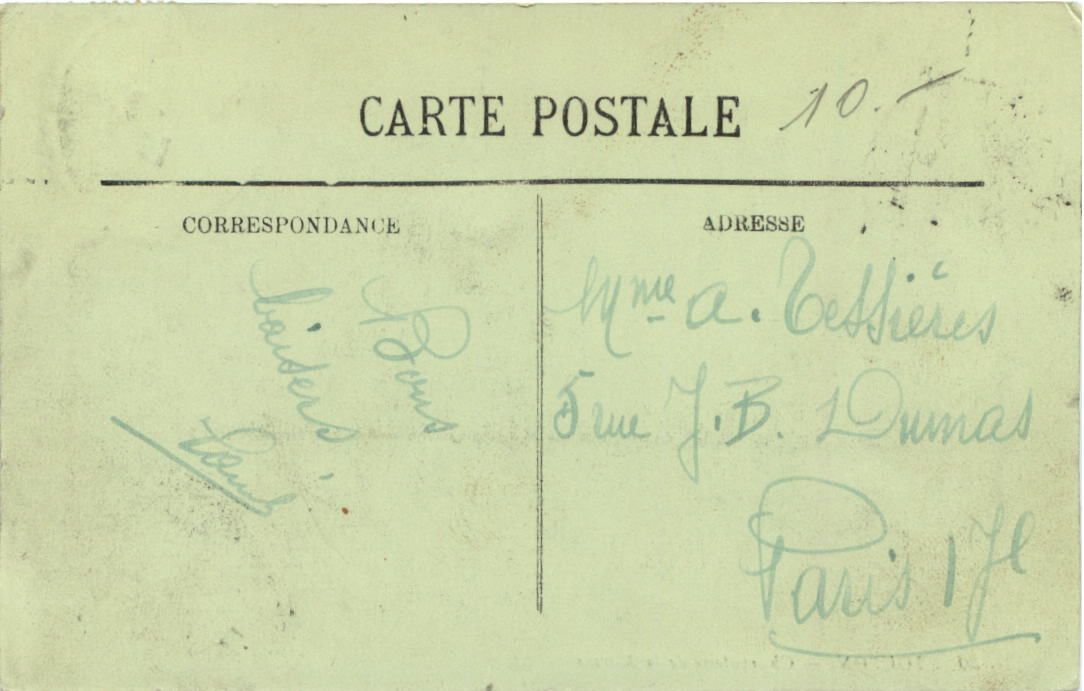 CARTE POSTALE
10.-
CORRESPONDANCE
Bons
baisers
ADRESSE
Mme A. Tessières
5 rue J.B. Dumas
Paris 17e